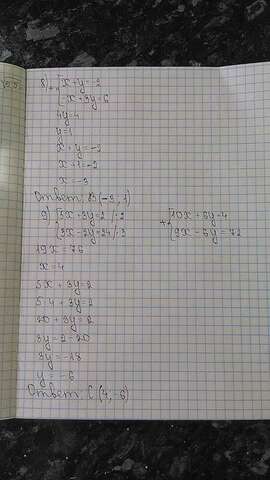 8) + { x + y = -2
{ -x + 3y = 6
4y = 4
y = 1
x + y = -2
x + 1 = -2
x = -3
Ответ: B (-3, 1)
9) { 5x + 3y = 2 | · 2
{ 3x - 2y = 24 | · 3
+ { 10x + 6y = 4
{ 9x - 6y = 72
19x = 76
x = 4
5x + 3y = 2
5 · 4 + 3y = 2
20 + 3y = 2
3y = 2 - 20
3y = -18
y = -6
Ответ: C (4, -6)